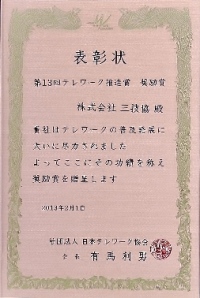 表彰状
第13回テレワーク推進賞 奨励賞
株式会社 三技協 殿
貴社はテレワークの普及発展に
大いに尽力されました
よってここにその功績を称え
奨励賞を贈呈します
2013年2月1日
社団法人 日本テレワーク協会
会長 有馬利男